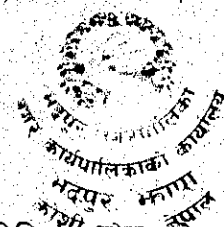 भद्रपुर नगरपालिका
नगर कार्यपालिकाको कार्यालय
भद्रपुर झापा
कोशी प्रदेश नेपाल